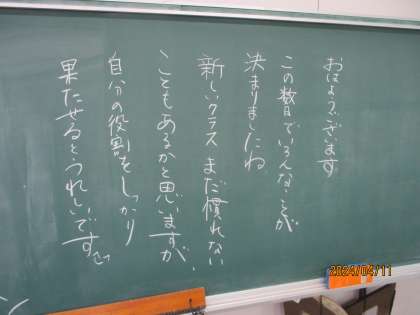 おはようございます
この数日でいろんなことが
決まりましたね
新しいクラス まだ慣れない
こともあるかと思いますが、
自分の役割をしっかり
果たせるとうれしいです。
2024/04/11